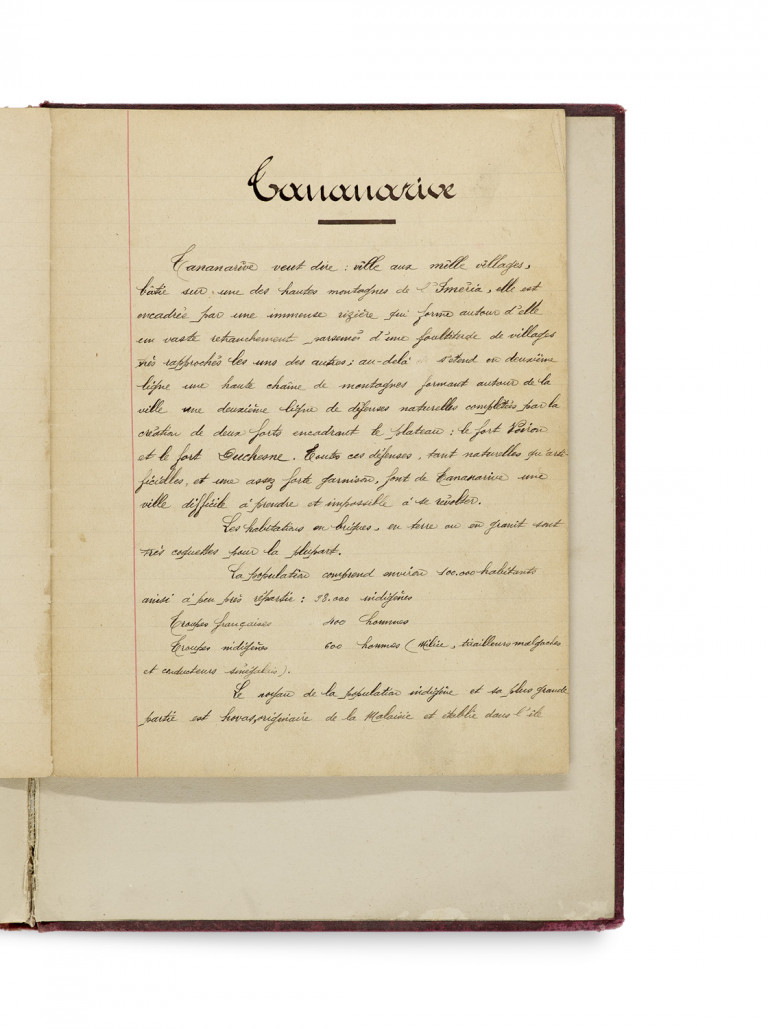 Tananarive
Tananarive veut dire : ville aux mille villages,
bâtie sur une des hautes montagnes de l'Iméria, elle est
encadrée par une immense rizière qui forme autour d'elle
un vaste retranchement parsemés d'une foultitude de villages
très rapprochés les uns des autres ; au-delà s'étend en deuxième
ligne une haute chaîne de montagnes formant autour de la
ville une deuxième ligne de défenses naturelles complétées par la
création de deux forts encadrant le plateau : le fort Voiron
et le fort Duchesne. Toutes ces défenses, tant naturelles qu'arti-
ficielles, et une assez forte garnison, font de Tananarive une
ville difficile à prendre et impossible à se révolter.
Les habitations en briques, en terre ou en granit sont
très coquettes pour la plupart.
La population comprend environ 100.000 habitants
ainsi à peu près répartie : 98.000 indigènes
Troupes françaises 400 hommes
Troupes indigènes 600 hommes (Milice, tirailleurs malgaches
et conducteurs sénégalais).
Le noyau de la population indigène et sa plus grande
partie est hovas, originaire de la Malaisie et établie dans l'île